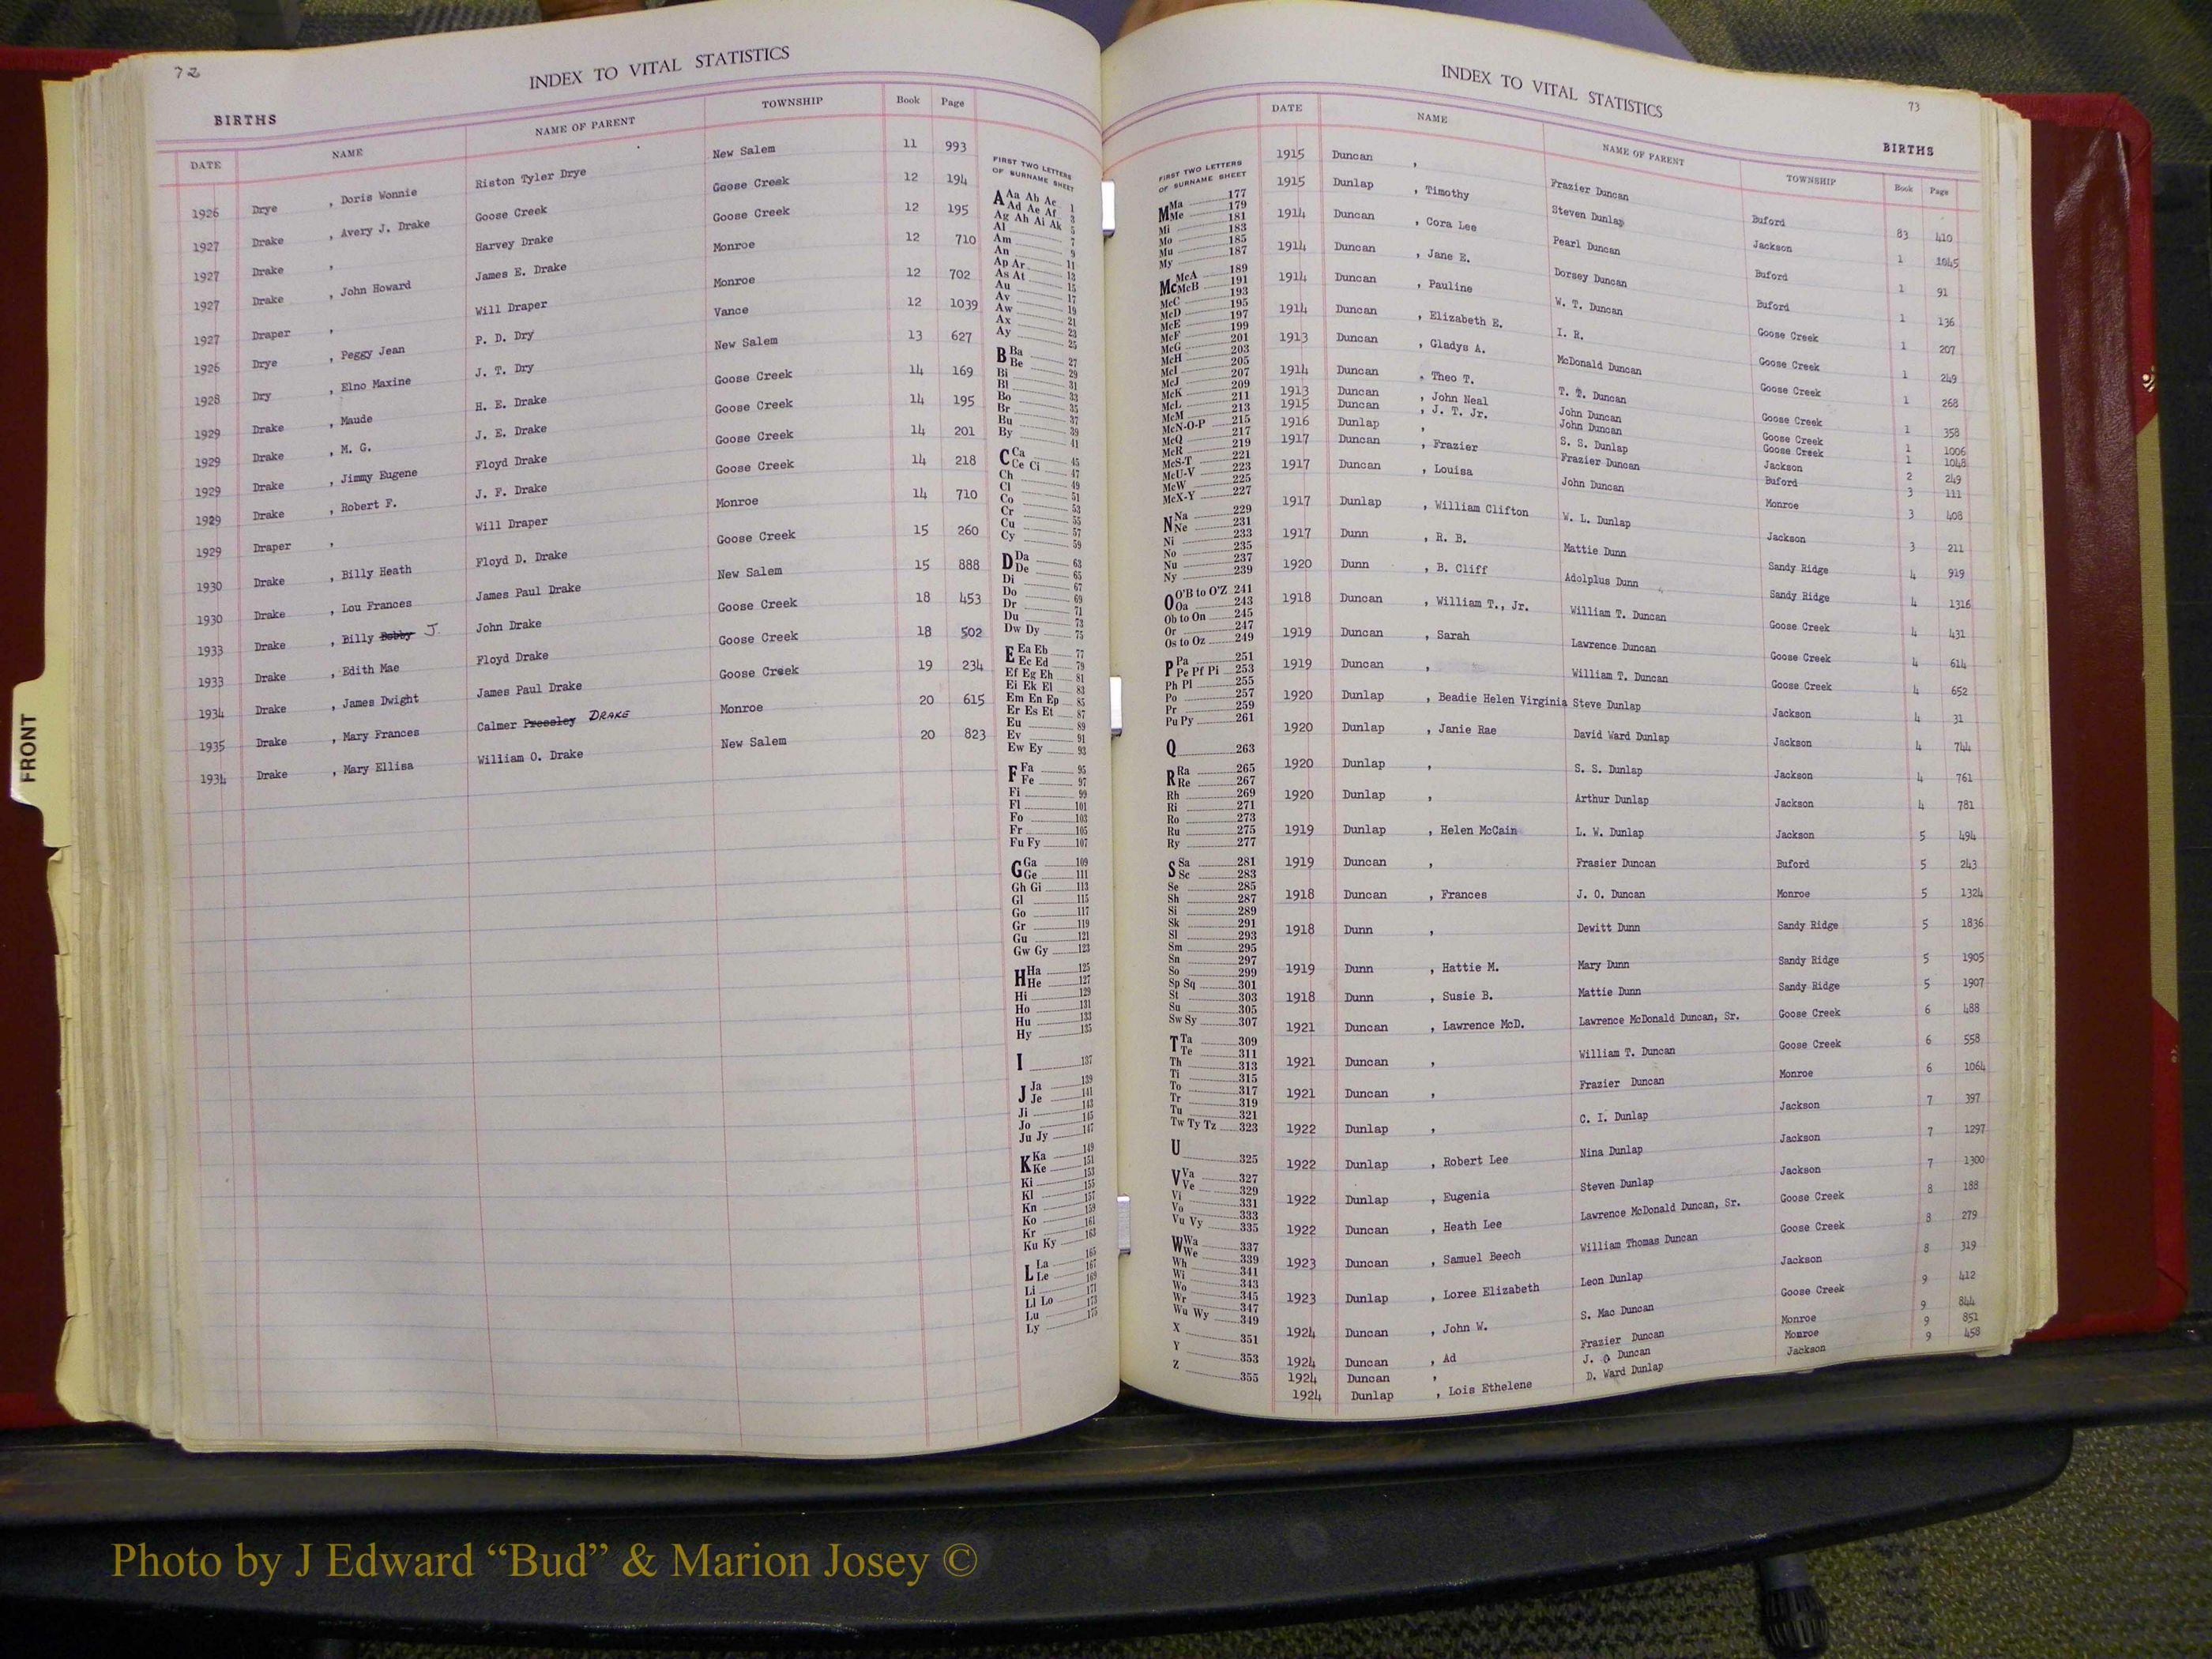 72
INDEX TO VITAL STATISTICS
BIRTHS
DATE NAME NAME OF PARENT TOWNSHIP Book Page
1926 Drye , Doris Wonnie Riston Tyler Drye New Salem 11 993
1927 Drake , Avery J. Drake Goose Creek Goose Creek 12 194
1927 Drake , Harvey Drake Goose Creek 12 195
1927 Drake , John Howard James E. Drake Monroe 12 710
1927 Draper , Will Draper Monroe 12 702
1926 Drye , Peggy Jean P. D. Dry Vance 12 1039
1928 Dry , Elno Maxine J. T. Dry New Salem 13 627
1929 Drake , Maude H. E. Drake Goose Creek 14 169
1929 Drake , M. G. J. E. Drake Goose Creek 14 195
1929 Drake , Jimmy Eugene Floyd Drake Goose Creek 14 201
1929 Drake , Robert F. J. F. Drake Goose Creek 14 218
1929 Draper , Will Draper Monroe 14 710
1930 Drake , Billy Heath Floyd D. Drake Goose Creek 15 260
1930 Drake , Lou Frances James Paul Drake New Salem 15 888
1933 Drake , Billy Bobby J. John Drake Goose Creek 18 453
1933 Drake , Edith Mae Floyd Drake Goose Creek 18 502
1934 Drake , James Dwight James Paul Drake Goose Creek 19 234
1935 Drake , Mary Frances Calmer Pressley DRAKE Monroe 20 615
1934 Drake , Mary Ellisa William O. Drake New Salem 20 823
FIRST TWO LETTERS
OF SURNAME SHEET
A Aa Ab Ac 1
Ad Ae Af 3
Ag Ah Ai Ak 5
Al 7
Am 9
An 11
Ap Ar 13
As At 15
Au 17
Av 19
Aw 21
Ax 23
Ay 25
B Ba 27
Be 29
Bi 31
Bl 33
Bo 35
Br 39
Bu 41
By
C Ca 45
Ce Ci 47
Ch 49
Cl 51
Co 53
Cr 55
Cu 57
Cy 59
D Da 63
De 65
Di 67
Do 69
Dr 71
Du 73
Dw Dy 75
E Ea Eb 77
Ec Ed 79
Ef Eg Eh 81
Ei Ek El 83
Em En Ep 85
Er Es Et 87
Eu 89
Ev 91
Ew Ey 93
F Fa 95
Fe 97
Fi 99
Fl 101
Fo 103
Fr 105
Fu Fy 107
G Ga 109
Ge 111
Gh Gi 113
Gl 115
Go 117
Gr 119
Gu 121
Gw Gy 123
H Ha 125
He 127
Hi 129
Ho 131
Hu 133
Hy 135
I 137
J Ja 139
Je 141
Ji 143
Jo 145
Ju Jy 147
K Ka 149
Ke 151
Ki 153
Kl 155
Kn 157
Ko 159
Kr 161
Ku Ky 163
L La 165
Le 167
Li 169
Ll Lo 171
Lu 173
Ly 175
FRONT
INDEX TO VITAL STATISTICS
73
BIRTHS
DATE NAME NAME OF PARENT TOWNSHIP Book Page
FIRST TWO LETTERS
OF SURNAME SHEET
M Ma 177
Me 179
Mi 181
Mo 183
Mu 185
My 187
Mc McA 189
McB 191
McC 193
McD 195
McE 197
McF 199
McG 201
McH 203
McI 205
McJ 207
McK 209
McL 211
McM 213
McN-O-P 215
McQ 217
McR 219
McS-T 221
McU-V 223
McW 225
McX-Y 227
N Na 229
Ne 231
Ni 233
No 235
Nu 237
Ny 239
O O'B to O'Z 241
Oa 243
Ob to On 245
Or 247
Os to Oz 249
P Pa 251
Pe Pf Pi 253
Ph Pl 255
Po 257
Pr 259
Pu Py 261
Q 263
R Ra 265
Re 267
Rh 269
Ri 271
Ro 273
Ru 275
Ry 277
S Sa 281
Sc 283
Se 285
Sh 287
Si 289
Sk 291
Sl 293
Sm 295
Sn 297
So 299
Sp Sq 301
St 303
Su 305
Sw Sy 307
T Ta 309
Te 311
Th 313
Ti 315
To 317
Tr 319
Tu 321
Tw Ty Tz 323
U 325
V Va 327
Ve 329
Vi 331
Vo 333
Vu Vy 335
W Wa 337
We 339
Wh 341
Wi 343
Wo 345
Wr 347
Wu Wy 349
X 351
Y 353
Z 355
1915 Duncan , Frazier Duncan Buford 83 410
1915 Dunlap , Timothy Steven Dunlap Jackson 1 1045
1914 Duncan , Cora Lee Pearl Duncan Buford 1 91
1914 Duncan , Jane E. Dorsey Duncan Buford 1 136
1914 Duncan , Pauline W. T. Duncan Goose Creek 1 207
1914 Duncan , Elizabeth E. I. R. Goose Creek 1 249
1913 Duncan , Gladys A. McDonald Duncan Goose Creek 1 268
1914 Duncan , Theo T. T. T. Duncan Goose Creek 1 358
1913 Duncan , John Neal John Duncan Goose Creek 1 1006
1915 Duncan , J. T. Jr. John Duncan Goose Creek 1 1048
1916 Dunlap , S. S. Dunlap Jackson 2 249
1917 Duncan , Frazier Frazier Duncan Buford 3 111
1917 Duncan , Louisa John Duncan Monroe 3 408
1917 Dunlap , William Clifton W. L. Dunlap Jackson 3 211
1917 Dunn , R. B. Mattie Dunn Sandy Ridge 4 919
1920 Dunn , B. Cliff Adolplus Dunn Sandy Ridge 4 1316
1918 Duncan , William T., Jr. William T. Duncan Goose Creek 4 431
1919 Duncan , Sarah Lawrence Duncan Goose Creek 4 614
1919 Duncan , William T. Duncan Goose Creek 4 652
1920 Dunlap , Beadie Helen Virginia Steve Dunlap Jackson 4 31
1920 Dunlap , Janie Rae David Ward Dunlap Jackson 4 744
1920 Dunlap , S. S. Dunlap Jackson 4 761
1920 Dunlap , Arthur Dunlap Jackson 4 781
1919 Dunlap , Helen McCain L. W. Dunlap Jackson 5 494
1919 Duncan , Frasier Duncan Buford 5 243
1918 Duncan , Frances J. O. Duncan Monroe 5 1324
1918 Dunn , Dewitt Dunn Sandy Ridge 5 1836
1919 Dunn , Hattie M. Mary Dunn Sandy Ridge 5 1905
1918 Dunn , Susie B. Mattie Dunn Sandy Ridge 5 1907
1921 Duncan , Lawrence McD. Lawrence McDonald Duncan, Sr. Goose Creek 6 488
1921 Duncan , William T. Duncan Goose Creek 6 558
1921 Duncan , Frazier Duncan Monroe 6 1064
1922 Dunlap , C. I. Dunlap Jackson 7 397
1922 Dunlap , Robert Lee Nina Dunlap Jackson 7 1297
1922 Dunlap , Eugenia Steven Dunlap Jackson 7 1300
1922 Duncan , Heath Lee Lawrence McDonald Duncan, Sr. Goose Creek 8 188
1923 Duncan , Samuel Beech William Thomas Duncan Goose Creek 8 279
1923 Dunlap , Loree Elizabeth Leon Dunlap Jackson 8 319
1924 Duncan , John W. S. Mac Duncan Goose Creek 9 412
1924 Duncan , Ad Frazier Duncan Monroe 9 844
1924 Duncan , J. O Duncan Monroe 9 851
1924 Dunlap , Lois Ethelene D. Ward Dunlap Jackson 9 458
Photo by J Edward “Bud” & Marion Josey ©